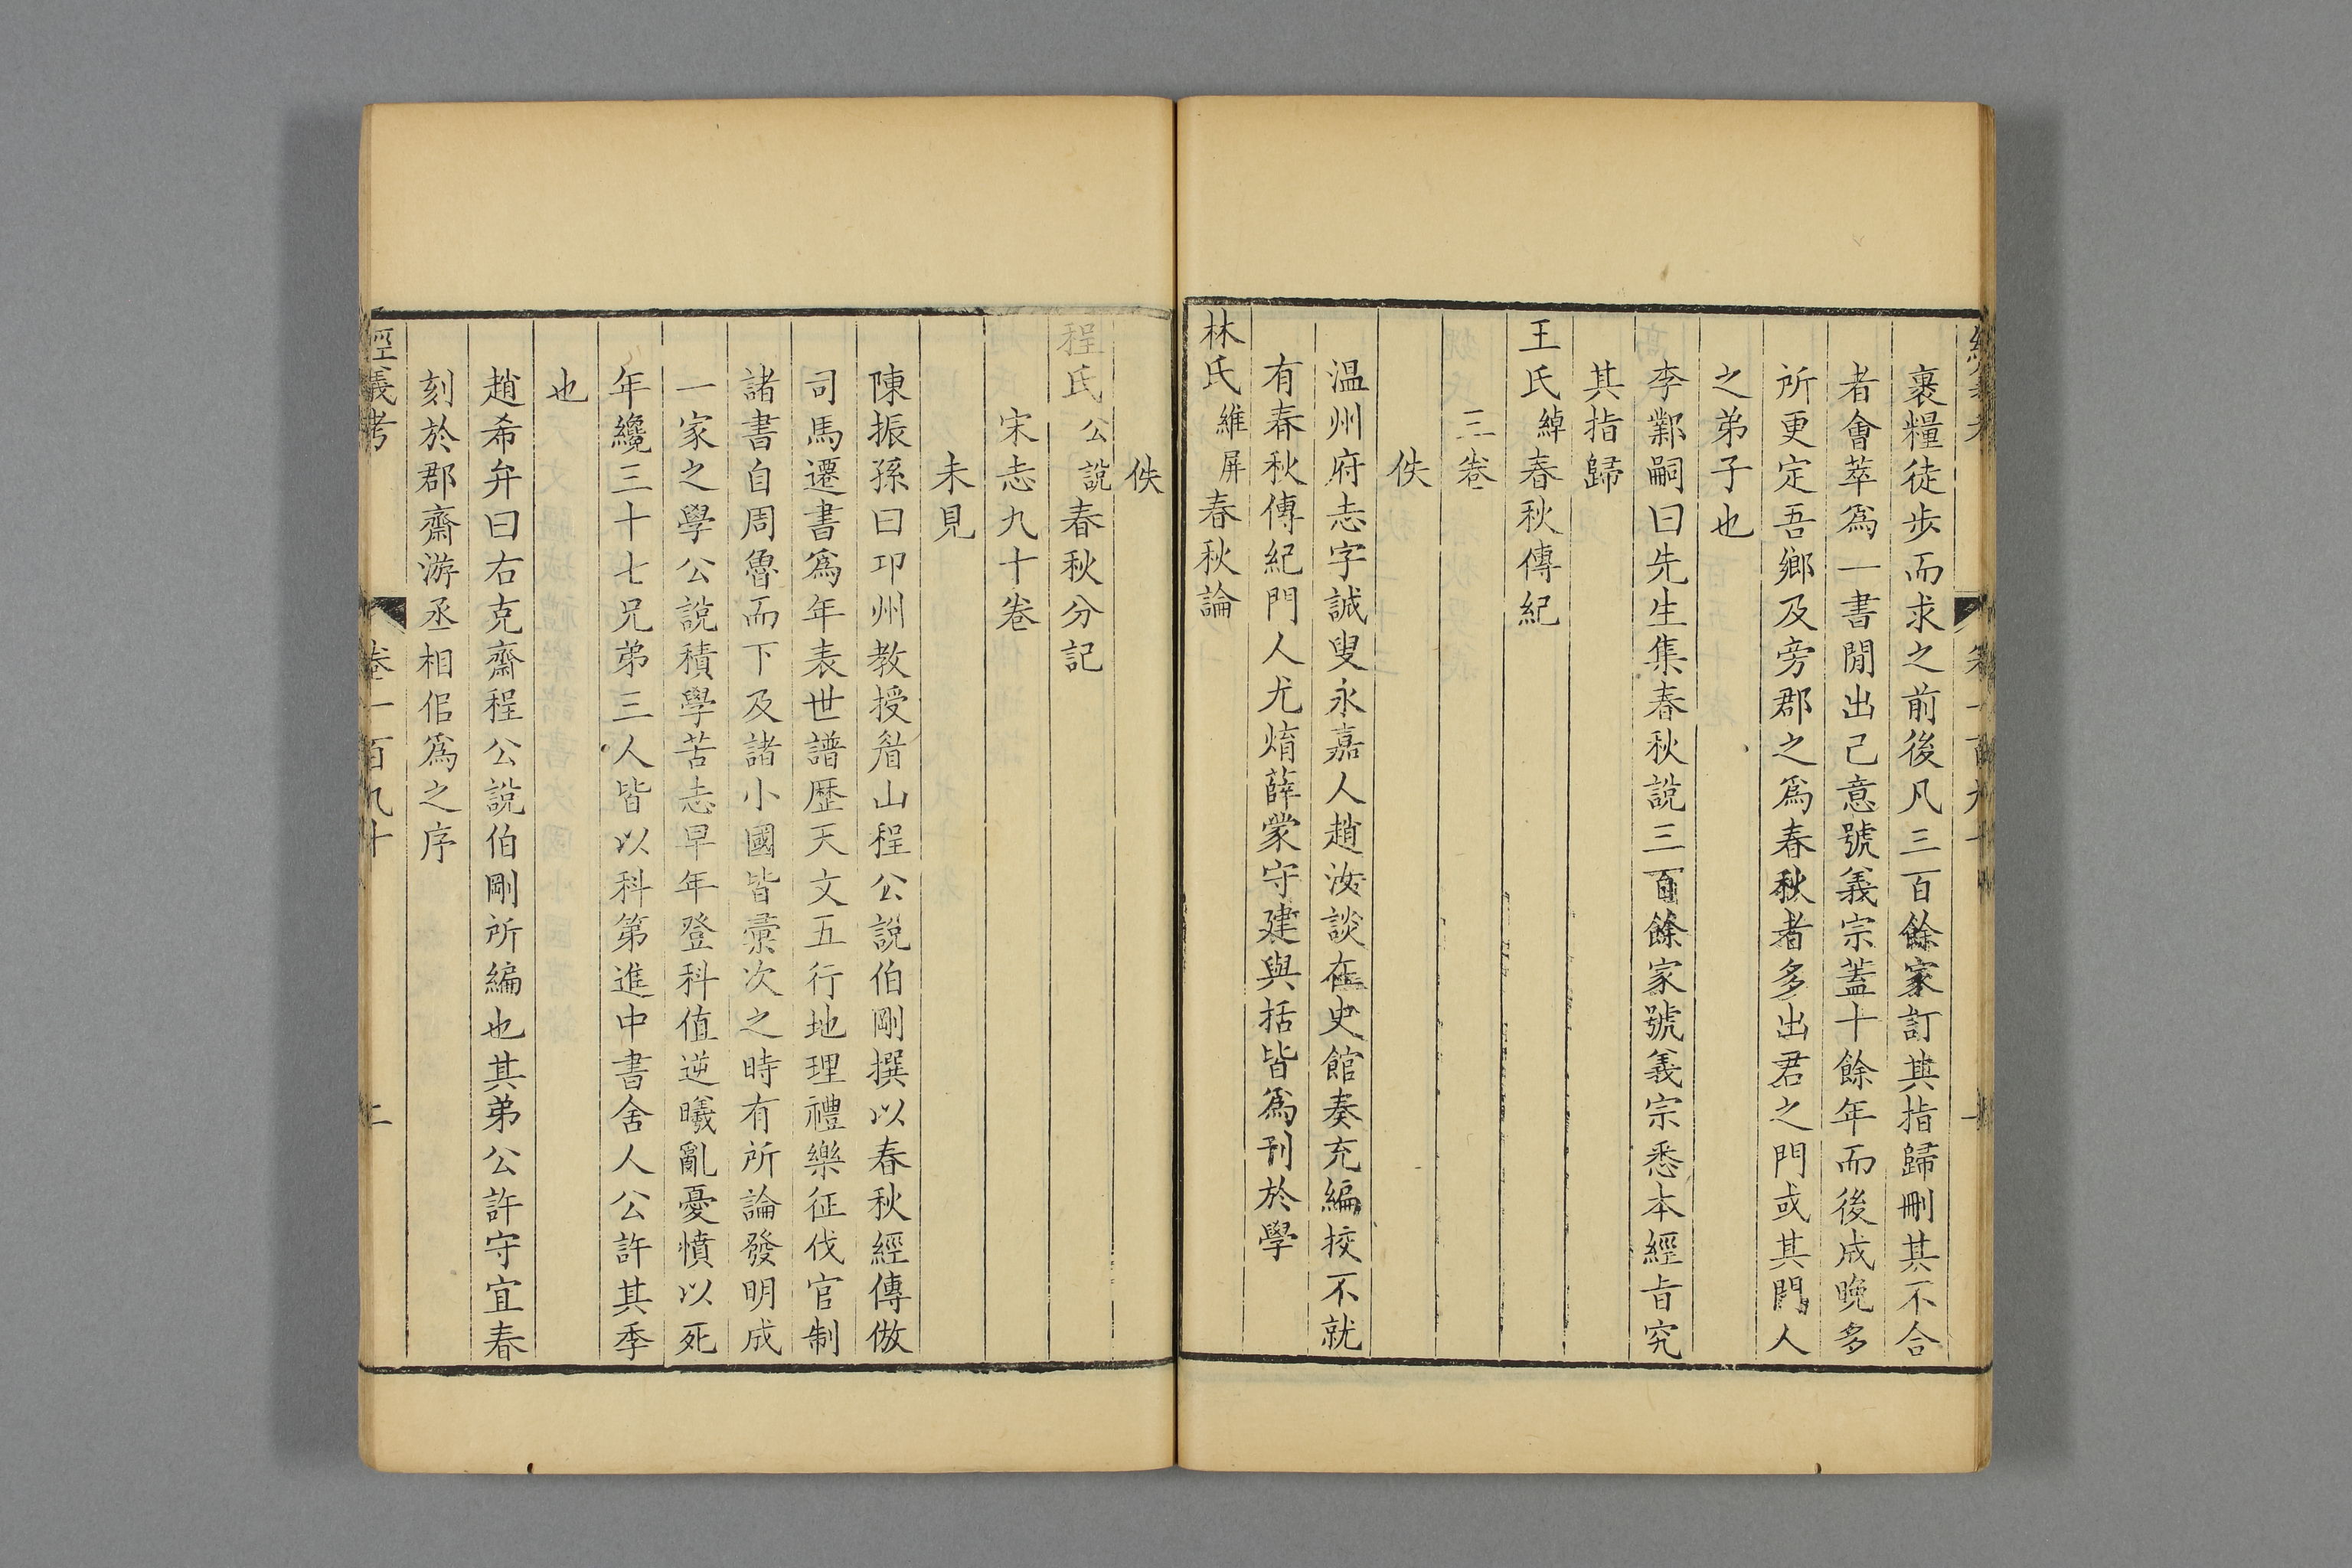 裹糧徒步而求之前後凡三百餘家訂其指歸刪其不合
者會萃爲一書閒出己意號義宗蓋十餘年而後成晚多
所更定吾鄉及旁郡之爲春秋者多出君之門或其門人
之弟子也
李鄴嗣曰先生集春秋說三百餘家號義宗悉本經旨究
其指歸
王氏綽春秋傳紀
三卷
佚
温州府志字誠叟永嘉人趙汝談在史館奏充編挍不就
有春秋傳紀門人尤焴薛蒙守建與括皆爲刊於學
林氏維屏春秋論
佚
程氏公說春秋分記
宋志九十卷
未見
陳振孫曰卭州教授眉山程公說伯剛撰以春秋經傳倣
司馬遷書爲年表世譜歷天文五行地理禮樂征伐官制
諸書自周魯而下及諸小國皆彙次之時有所論發明成
一家之學公說積學苦志早年登科值逆曦亂憂憤以死
年纔三十七兄弟三人皆以科第進中書舍人公許其季
也
趙希弁曰右克齋程公說伯剛所編也其弟公許守宜春
刻於郡齋游丞相佀爲之序
經義考
卷一百九十
二